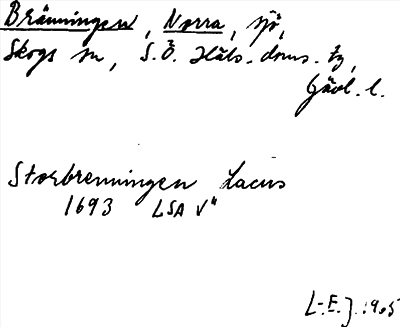 Bränningen, Norra, sjö,
Skogs sn, S.Ö. Häls. doms. tg,
Gävl. l.
Storbrenningen Lacus
1693 LSA V"
L-E.J. 1905